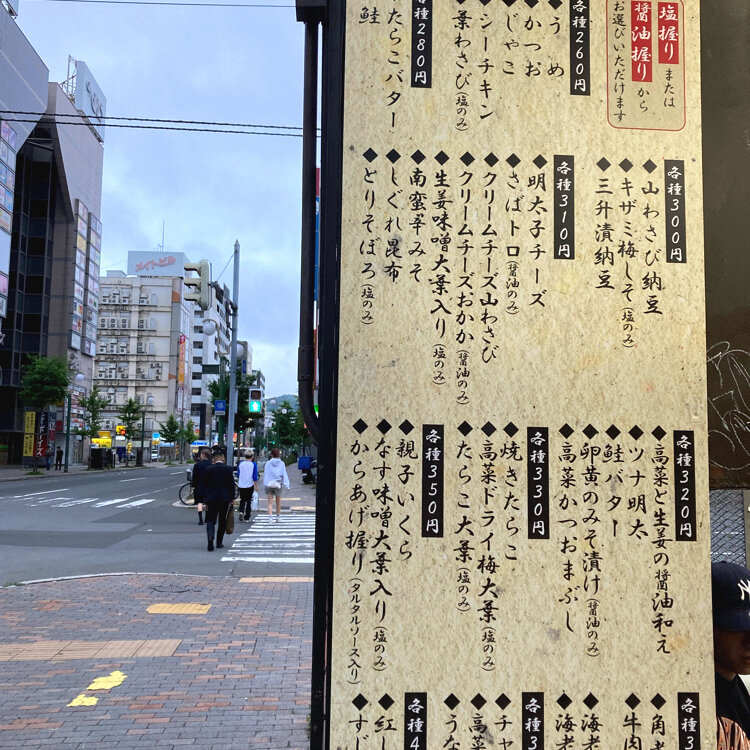 塩握り または
醤油握り から
お選びいただけます
各種260円
◆うめ
◆かつお
◆じゃこ
◆シーチキン
◆葉わさび(塩のみ)
各種280円
◆たらこバター
鮭
各種300円
◆山わさび納豆
◆キザミ梅しそ(塩のみ)
◆三升漬納豆
各種310円
◆明太子チーズ
◆さばトロ(醤油のみ)
◆クリームチーズ山わさび
◆クリームチーズおかか(醤油のみ)
◆生姜味噌大葉入り(塩のみ)
◆南蛮辛みそ
◆しぐれ昆布
◆とりそぼろ(塩のみ)
各種320円
◆高菜と生姜の醤油和え
◆ツナ明太
◆鮭バター
◆卵黄のみそ漬け(醤油のみ)
◆高菜かつおまぶし
各種330円
◆焼きたらこ
◆高菜ドライ梅大葉(塩のみ)
◆たらこ大葉(塩のみ)
各種350円
◆親子いくら
◆なす味噌大葉入り(塩のみ)
◆からあげ握り(タルタルソース入り)
各種3
◆角
◆牛肉
◆海老
◆海老
各種3
◆チャ
◆高菜
◆うな
各種4
◆紅し
◆すじ
メイトビル